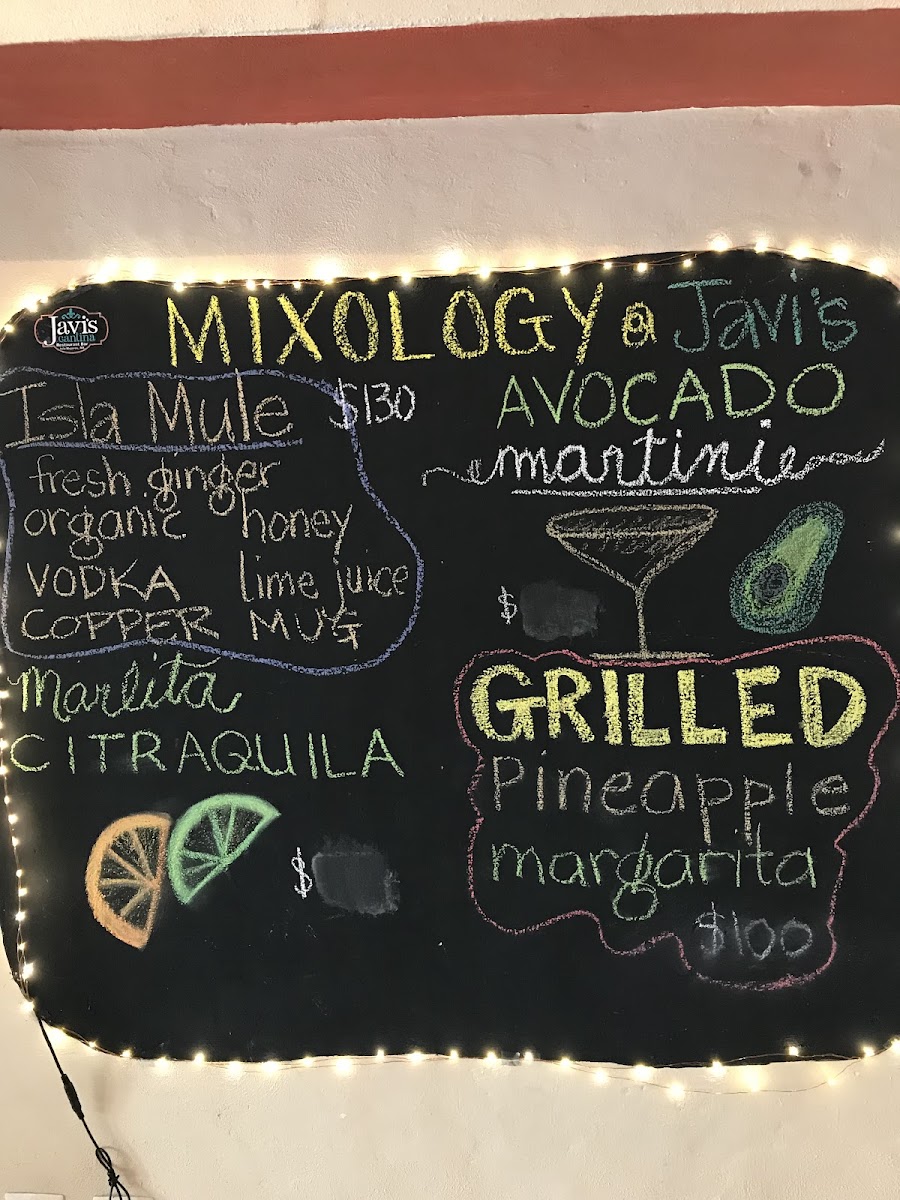 MIXOLOGY @ Javi's
Javi's
cantina
Restaurant Bar
Isla Mule $130
fresh ginger
organic honey
VODKA lime juice
COPPER MUG
AVOCADO
martini
$
Marlita
CITRAQUILA
$
GRILLED
Pineapple
margarita
$100